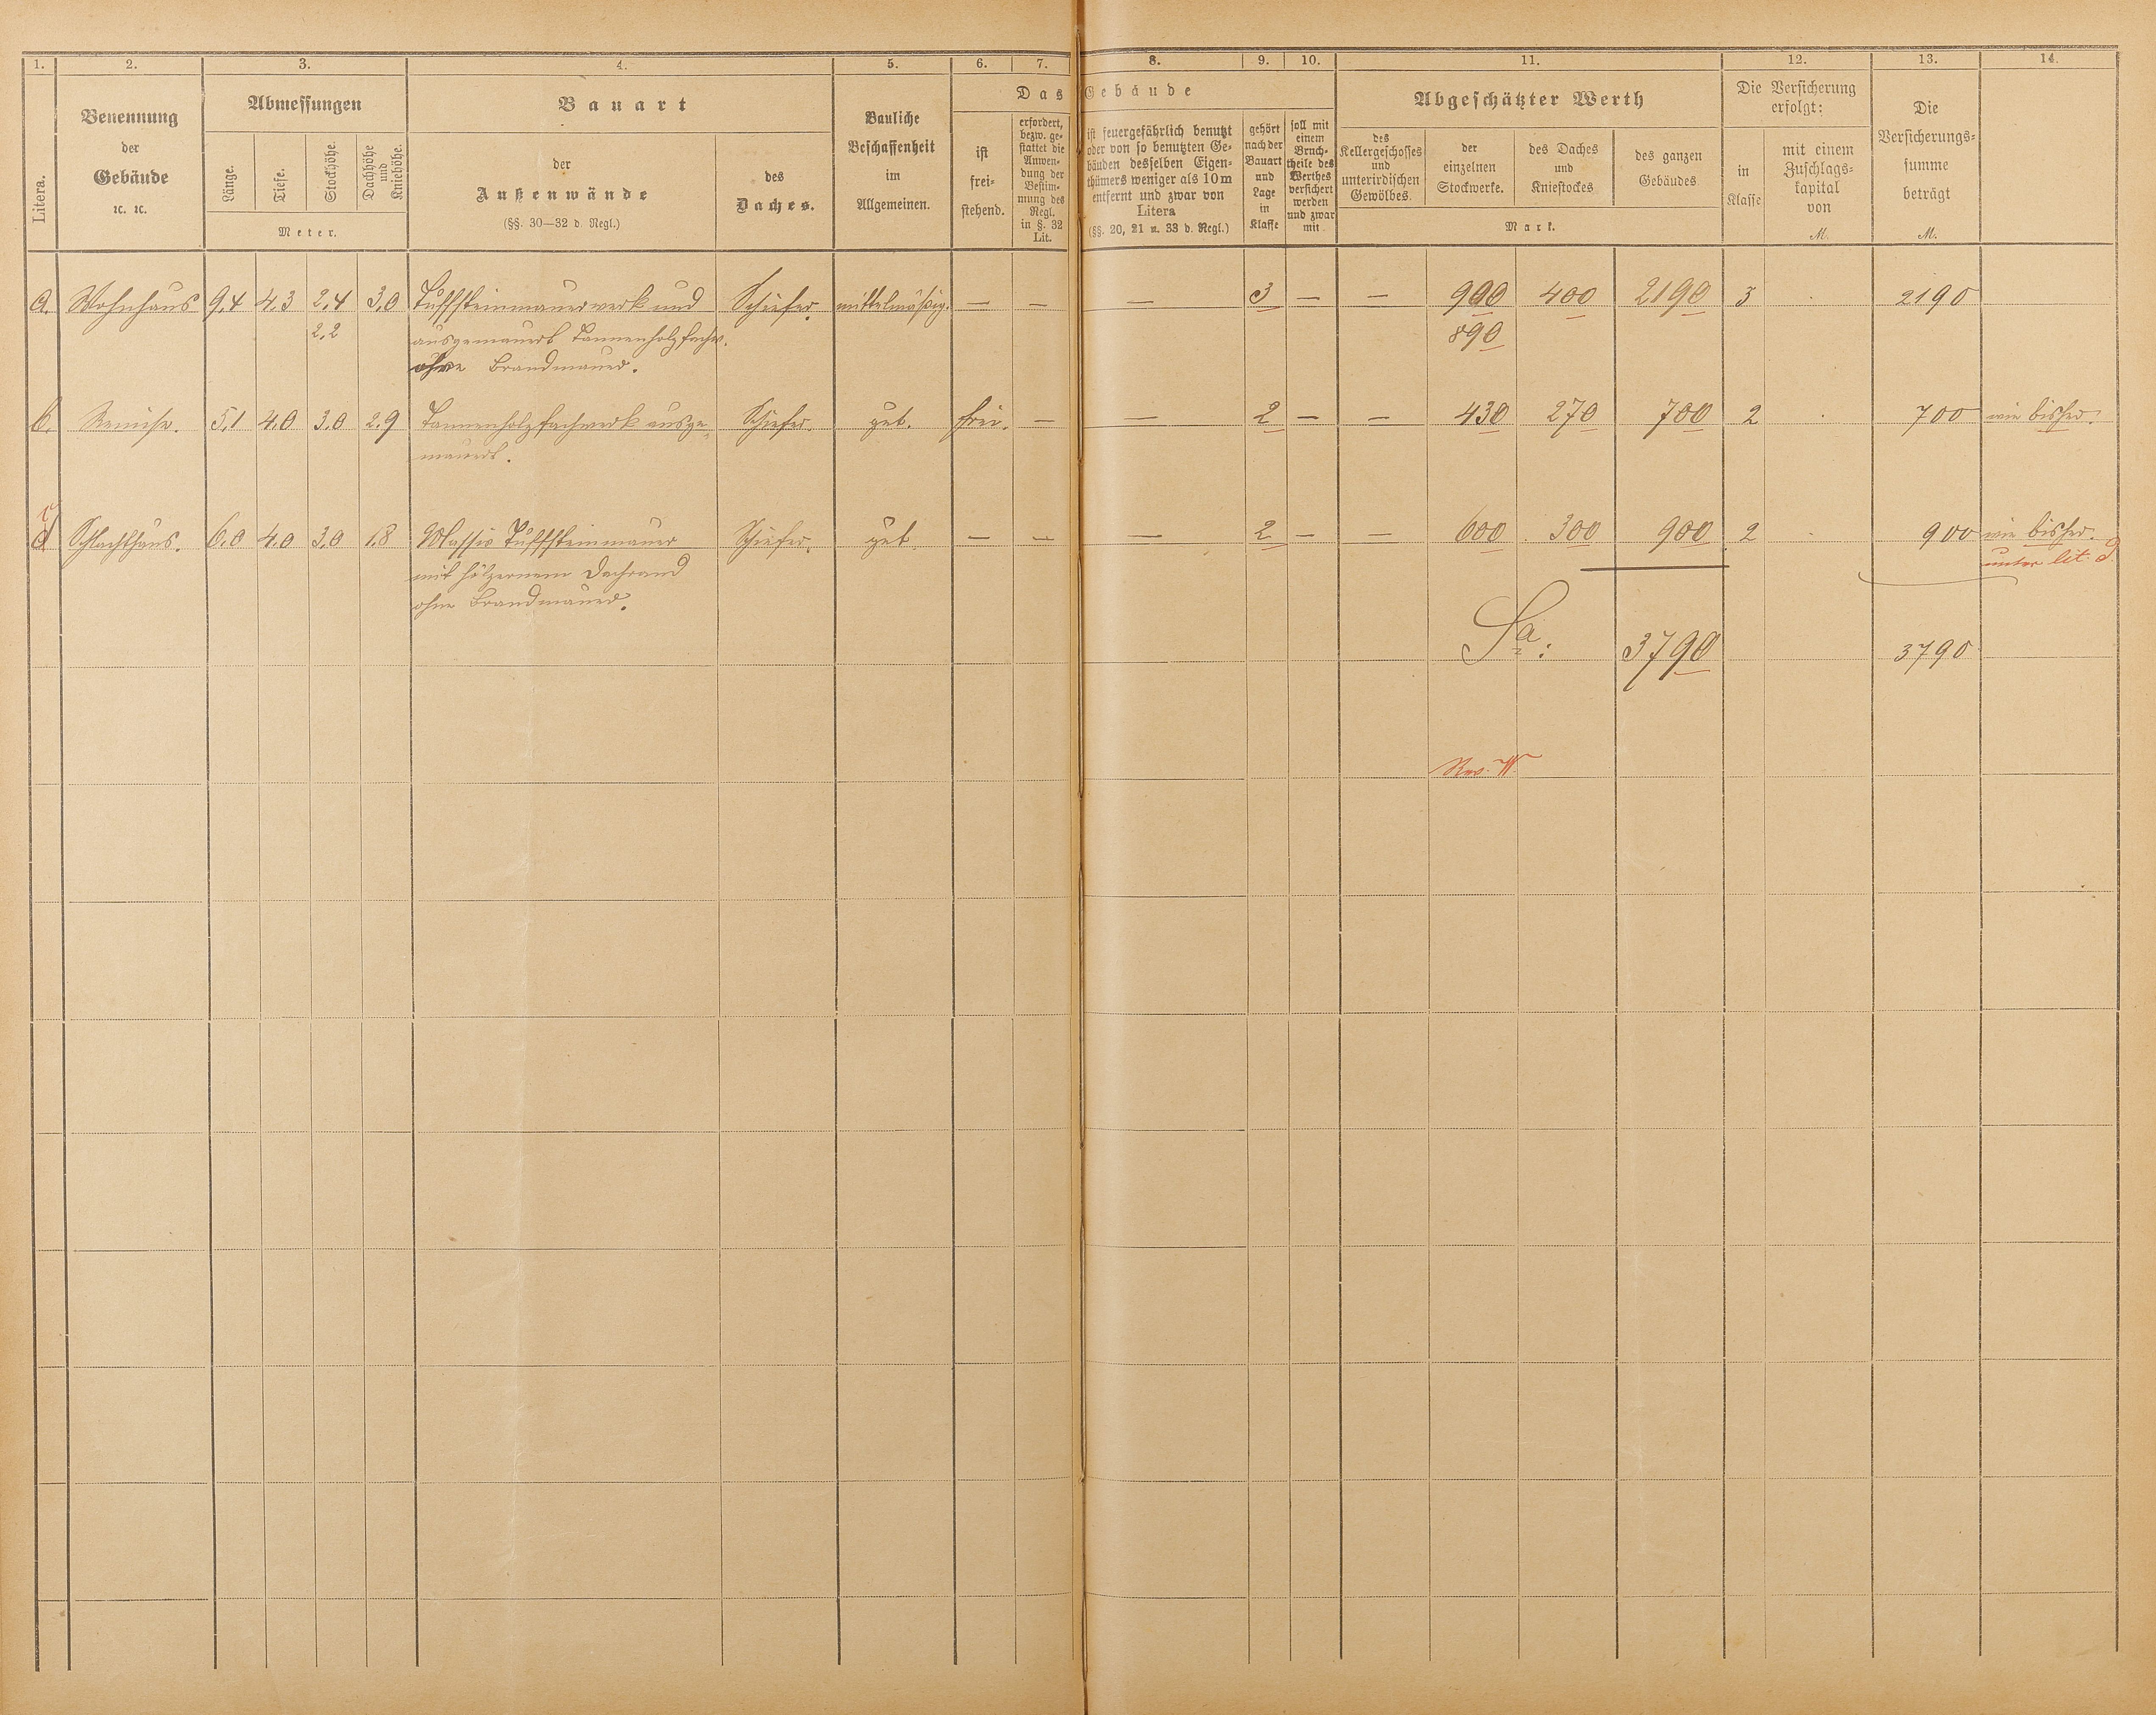 1. 2. 3. 4. 5. 6. 7. 8. 9. 10. 11. 12. 13. 14.
Litera.
Benennung
der
Gebäude
ꝛc. ꝛc.
Abmessungen
Länge.
Tiefe.
Stockhöhe.
Dachhöhe
und
Kniehöhe.
Meter.
Bauart
der
Außenwände
(§§. 30—32 d. Regl.)
des
Daches.
Bauliche
Beschaffenheit
im
Allgemeinen.
Das Gebäude
ist
frei-
stehend.
erfordert,
bezw. ge-
stattet die
Anwen-
dung der
Bestim-
mung des
Regl.
in §. 32
Lit.
ist feuergefährlich benutzt
oder von so benutzten Ge-
bäuden desselben Eigen-
thümers weniger als 10 m
entfernt und zwar von
Litera
(§§. 20, 21 u. 33 d. Regl.)
gehört
nach der
Bauart
und
Lage
in
Klasse
soll mit
einem
Bruch-
theile des
Werthes
versichert
werden
und zwar
mit
Abgeschätzter Werth
des
Kellergeschosses
und
unterirdischen
Gewölbes.
der
einzelnen
Stockwerke.
des Daches
und
Kniestockes
des ganzen
Gebäudes
Mark.
Die Versicherung
erfolgt:
in
Klasse
mit einem
Zuschlags-
kapital
von
M.
Die
Versicherungs-
summe
beträgt
M.
a. Wohnhaus 9,4 4,3 2,4 3,0 Tuffsteinmauerwerk und Schiefer. mittelmäßig. — — — 3 — — 900 400 2190 3 · 2190
2,2 ausgemauert Tannenholzfachw. 890
ohne Brandmauer.
b. Remise. 5,1 4,0 3,0 2,9 Tannenholzfachwerk ausge- Schiefer. gut. frei. — — 2 — — 430 270 700 2 · 700 wie bisher.
mauert.
c
d Schlachthaus. 6,0 4,0 3,0 1,8 Massiv Tuffsteinmauer Schiefer. gut. — — — 2 — — 600 300 900 2 · 900 wie bisher.
mit hölzernem Dachrand unter lit. d.
ohne Brandmauer.
Sa: 3790 3790
Rev. W.